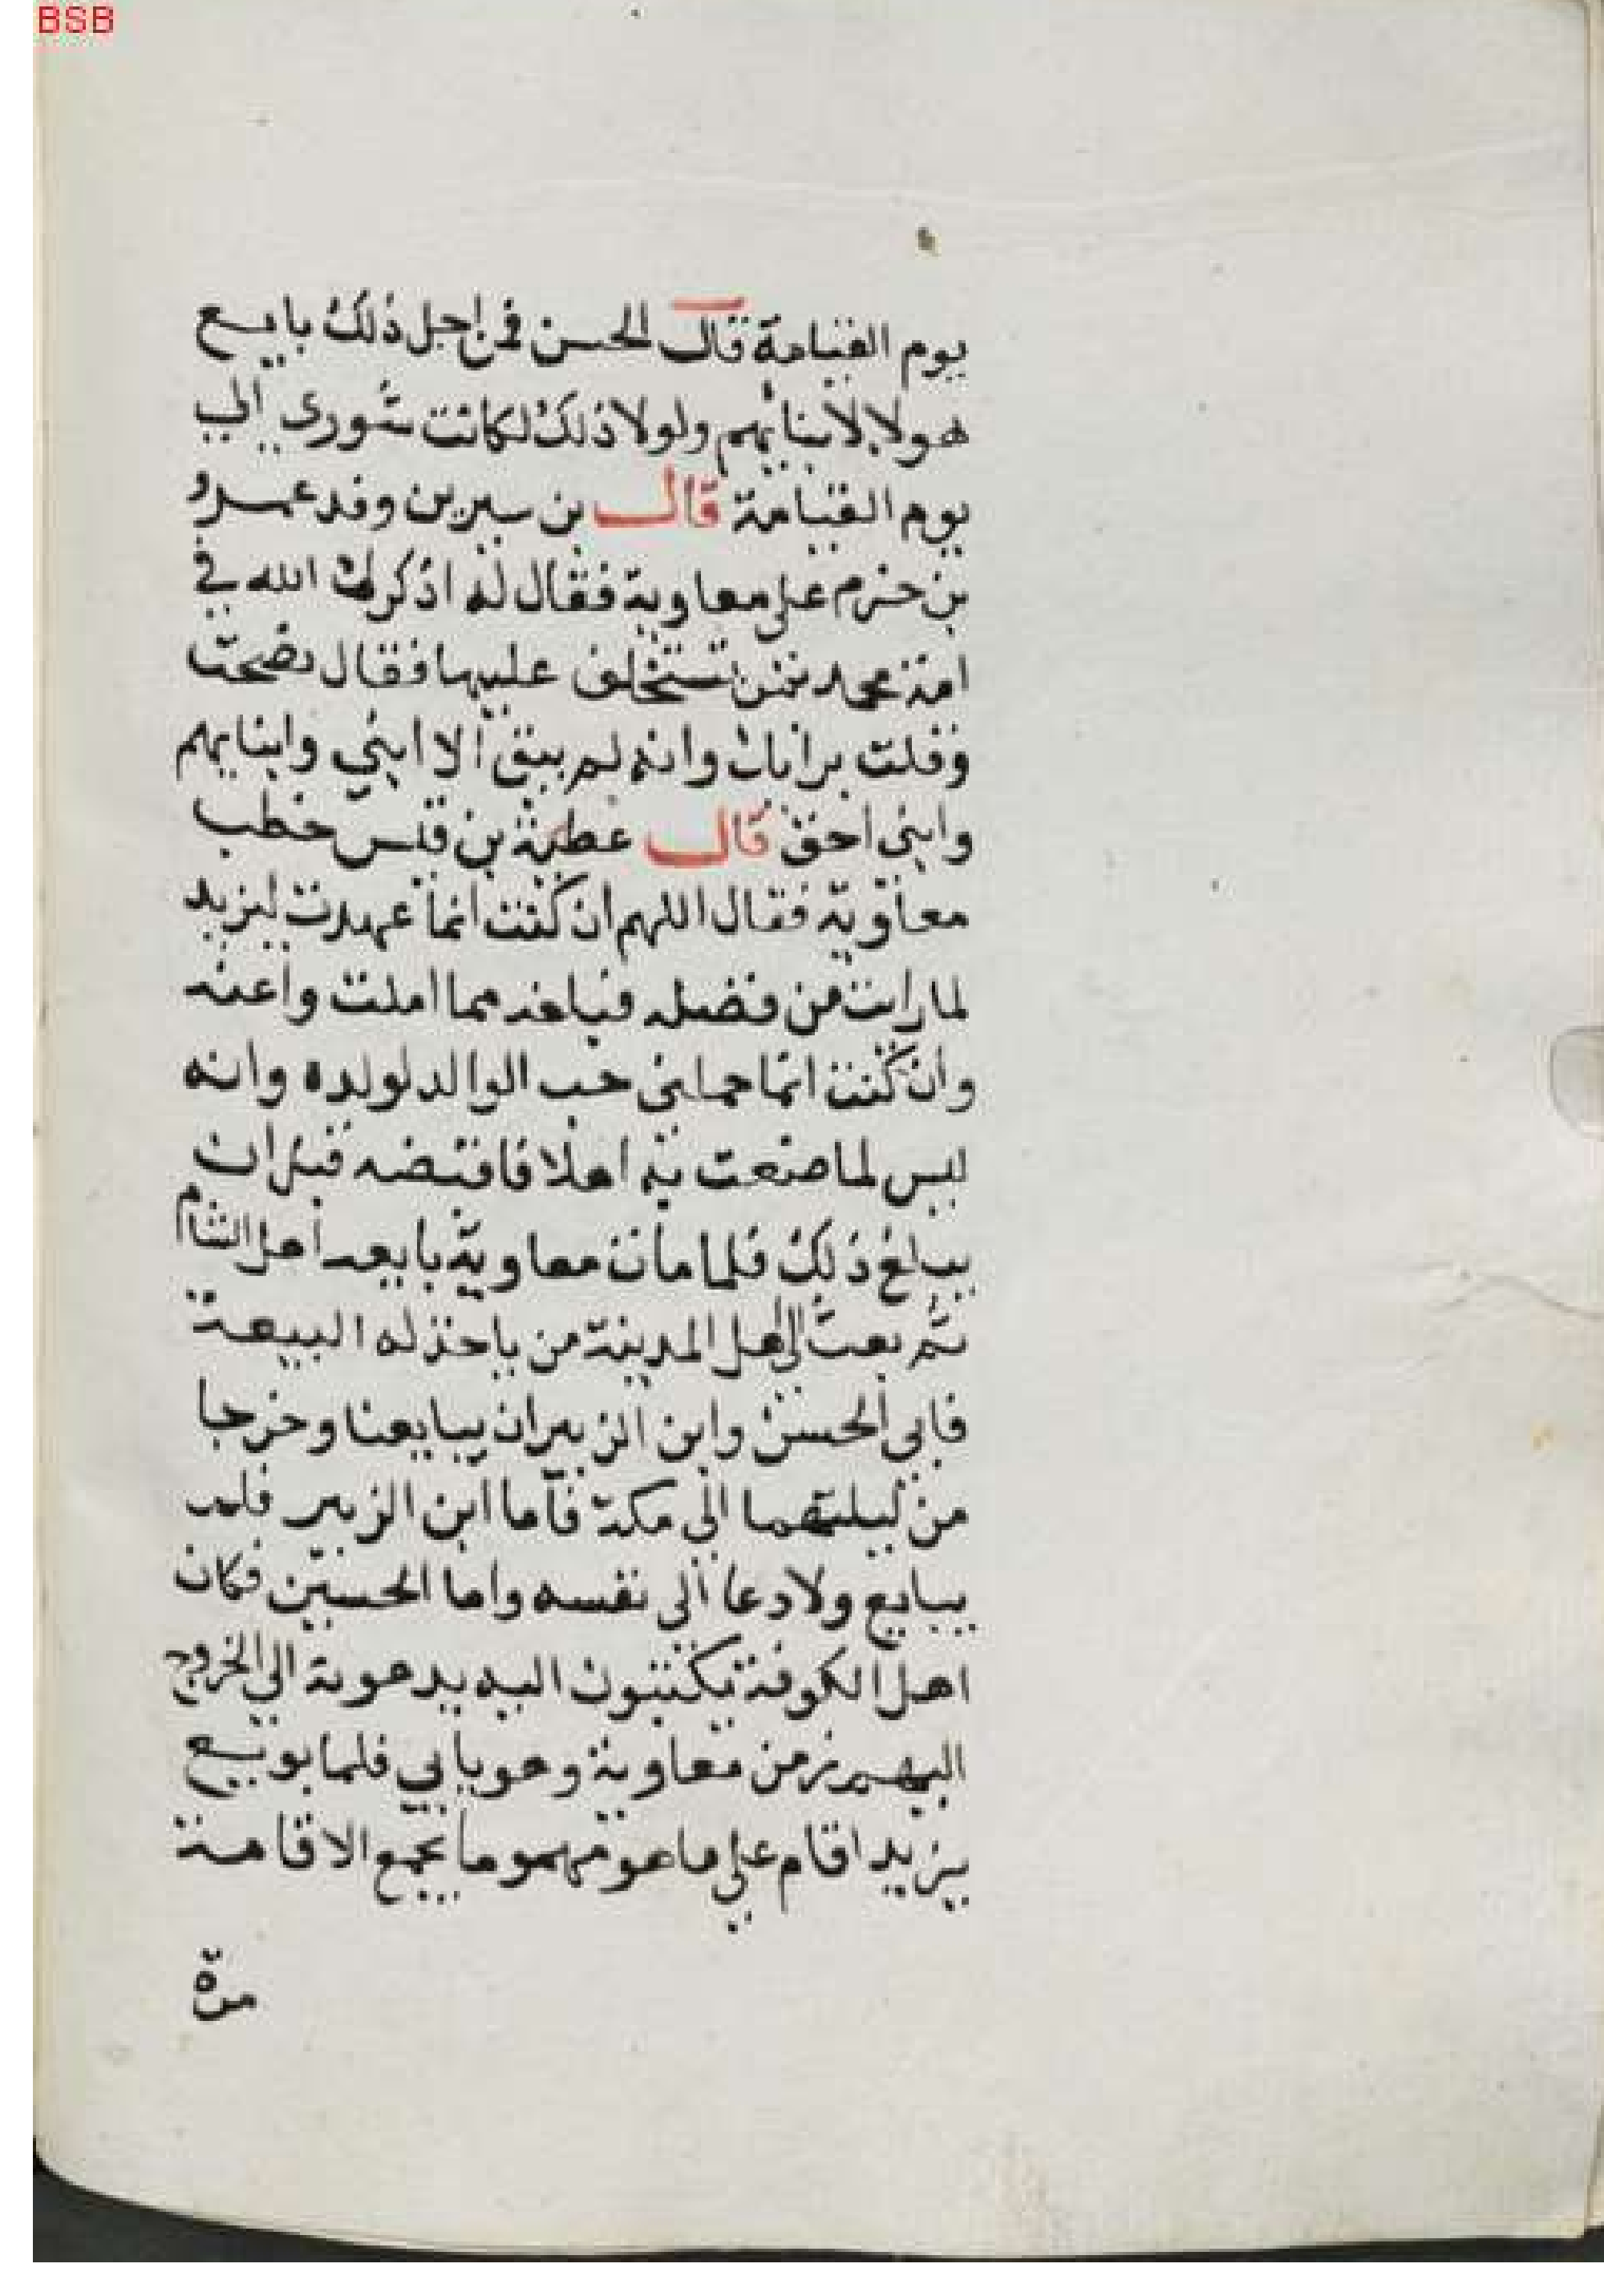 BSB
يوم القيامة قال الحسن فمن اجل ذلك بايع
هولا لابنايهم ولولا ذلك لكانت شورى الي
يوم القيامة قال بن سيرين وفد عمرو
بن حزم على معاوية فقال له اذكرك الله في
امة محمد بمن تستخلف عليها فقال نصحت
وقلت برايك وانه لم يبق الا ابني وابنايهم
وابني احق قال عطية بن قيس خطب
معاوية فقال اللهم ان كنت انما عهدت ليزيد
لما رايت من فضله فبلغه مما املت واعنه
وان كنت انما حملني حب الوالد لولده وانه
ليس لما صنعت به اهلا فاقبضه قبل ان
يبلغ ذلك فلما مات معاوية بايعه اهل الشام
ثم بعث الى اهل المدينة من ياخذ له البيعة
فابى الحسن وابن الزبير ان يبايعا وخرجا
من ليلتهما الى مكة فاما ابن الزبير فلم
يبايع ولا دعا الى نفسه واما الحسين فكان
اهل الكوفة يكتبون اليه يدعونه الى الخروج
اليهم زمن معاوية وهو يابي فلما بويع
يزيد اقام على ما هو مهموما يجمع الاقامة
مرة